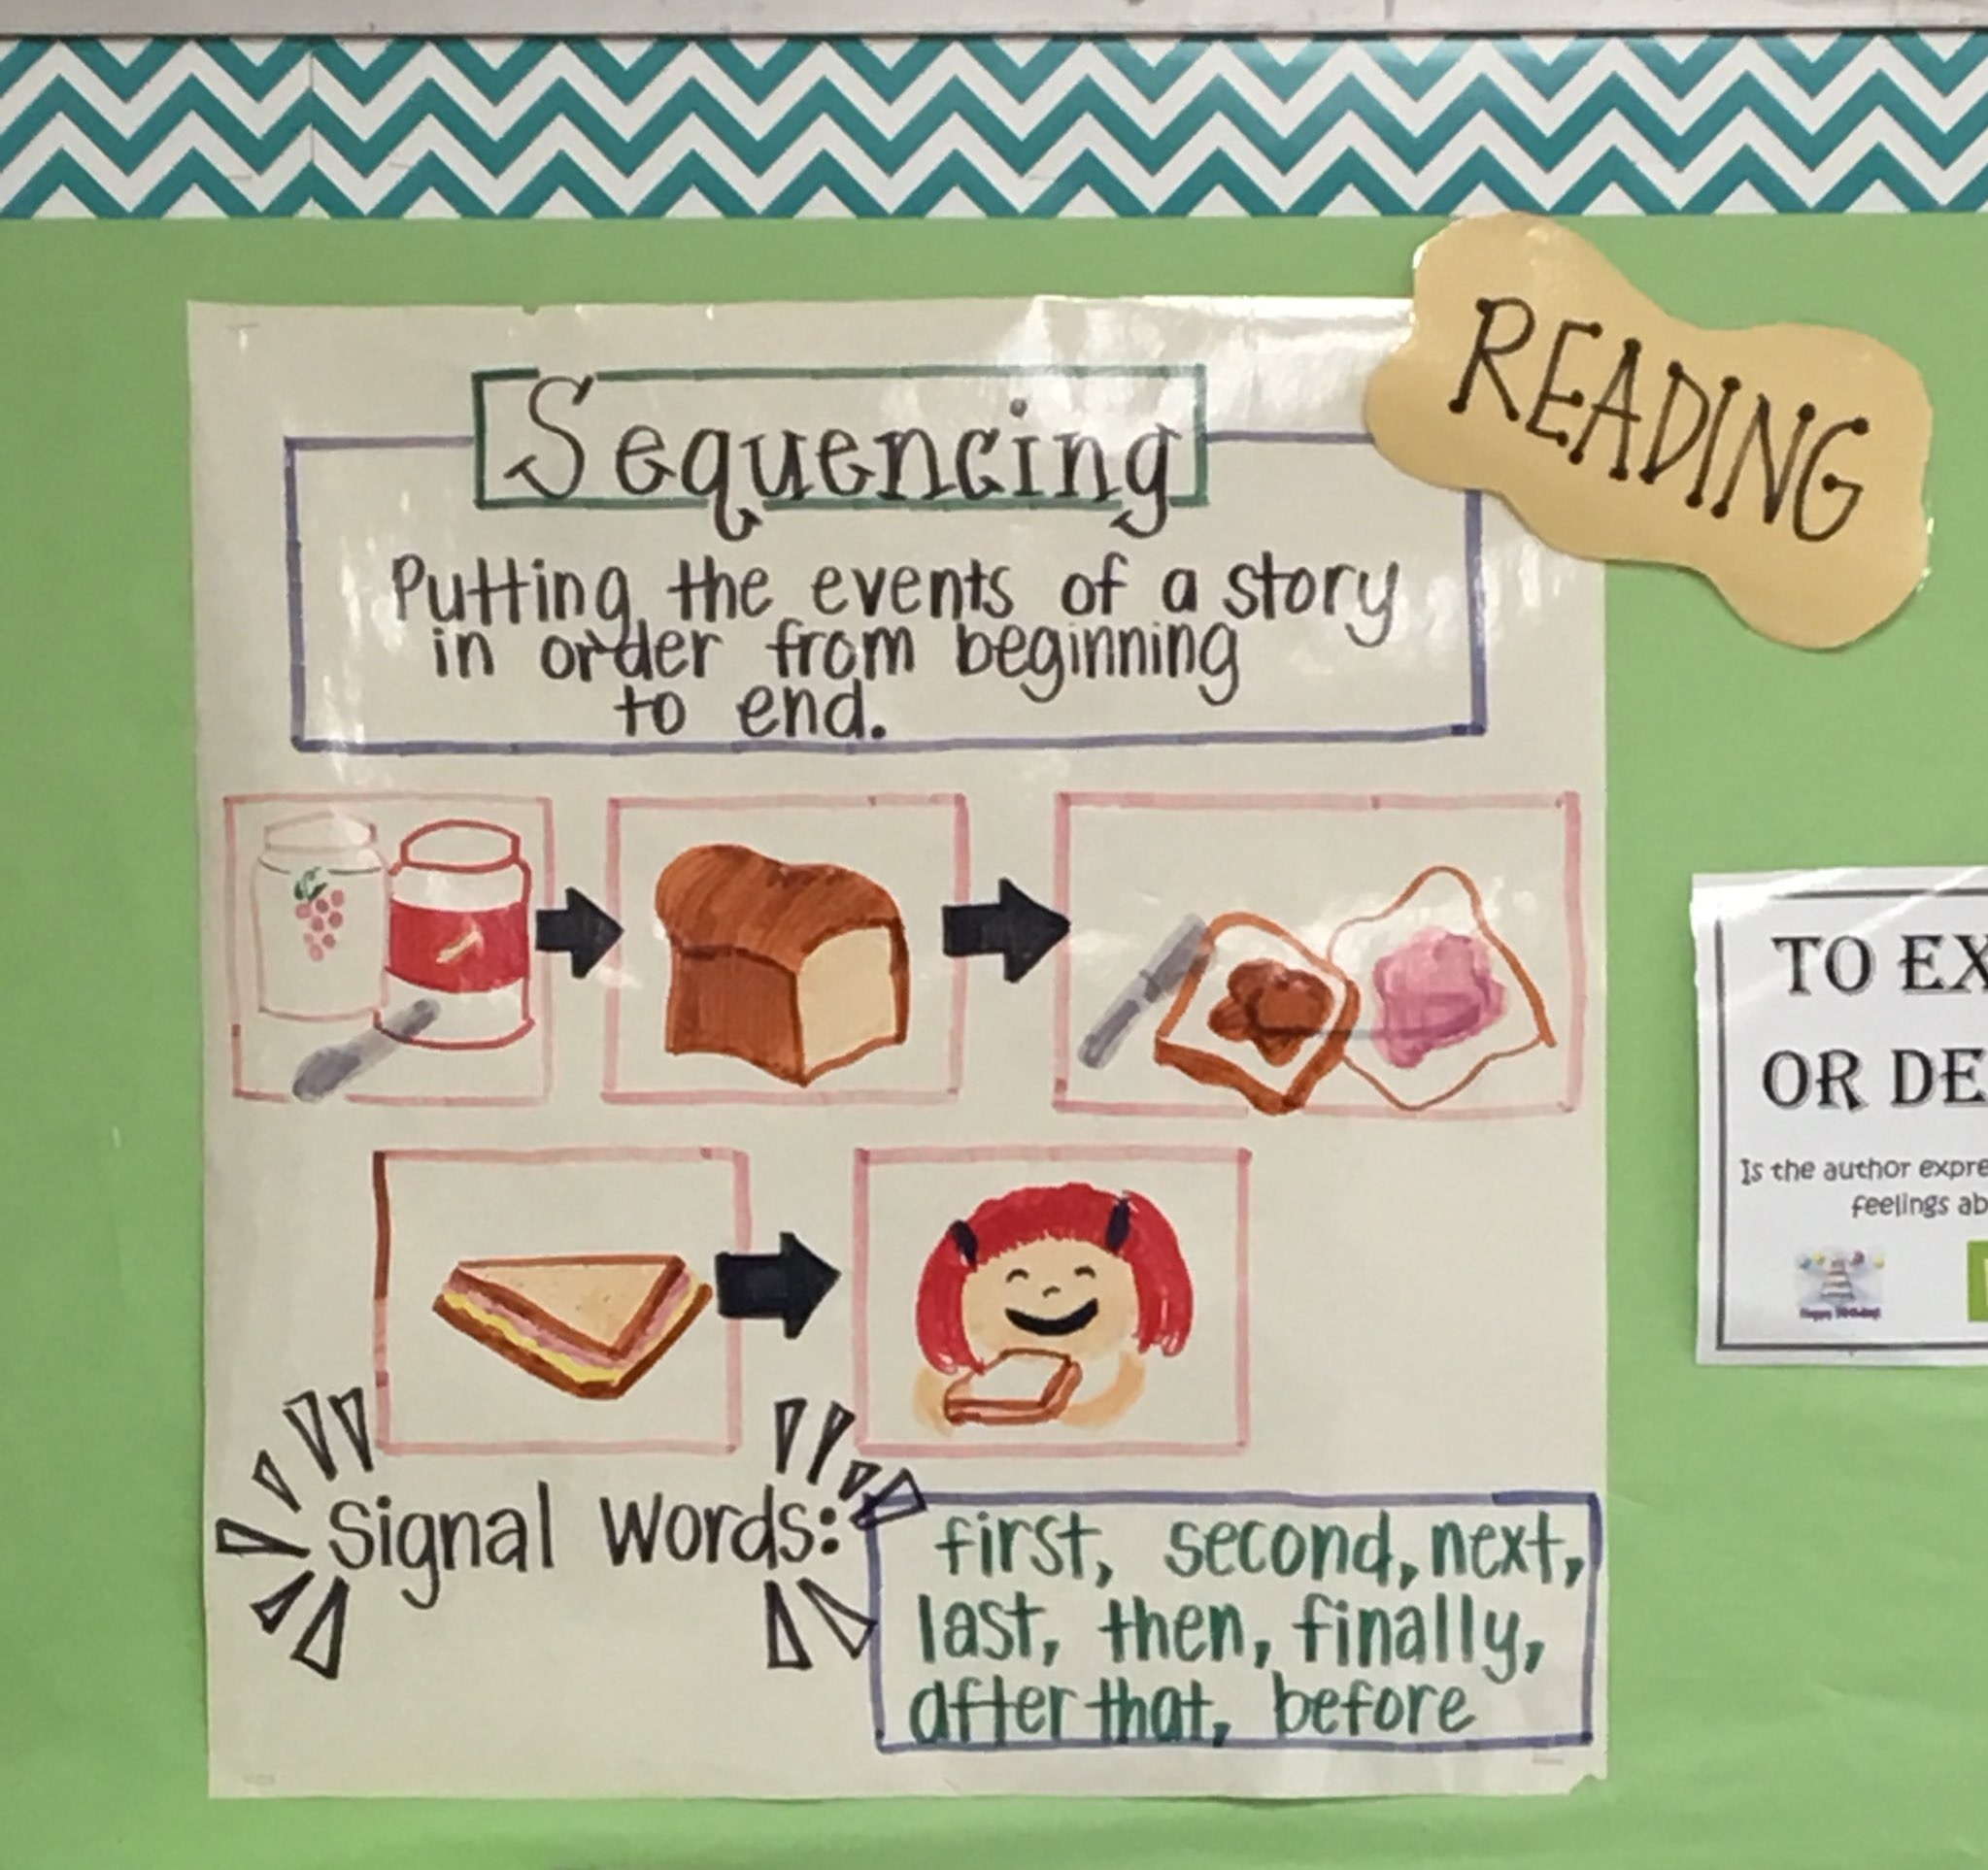 READING
Sequencing
Putting the events of a story
in order from beginning
to end.
Signal Words:
first, second, next,
last, then, finally,
after that, before
TO EX
OR DE
Is the author expre
feelings ab
Happy Birthday!